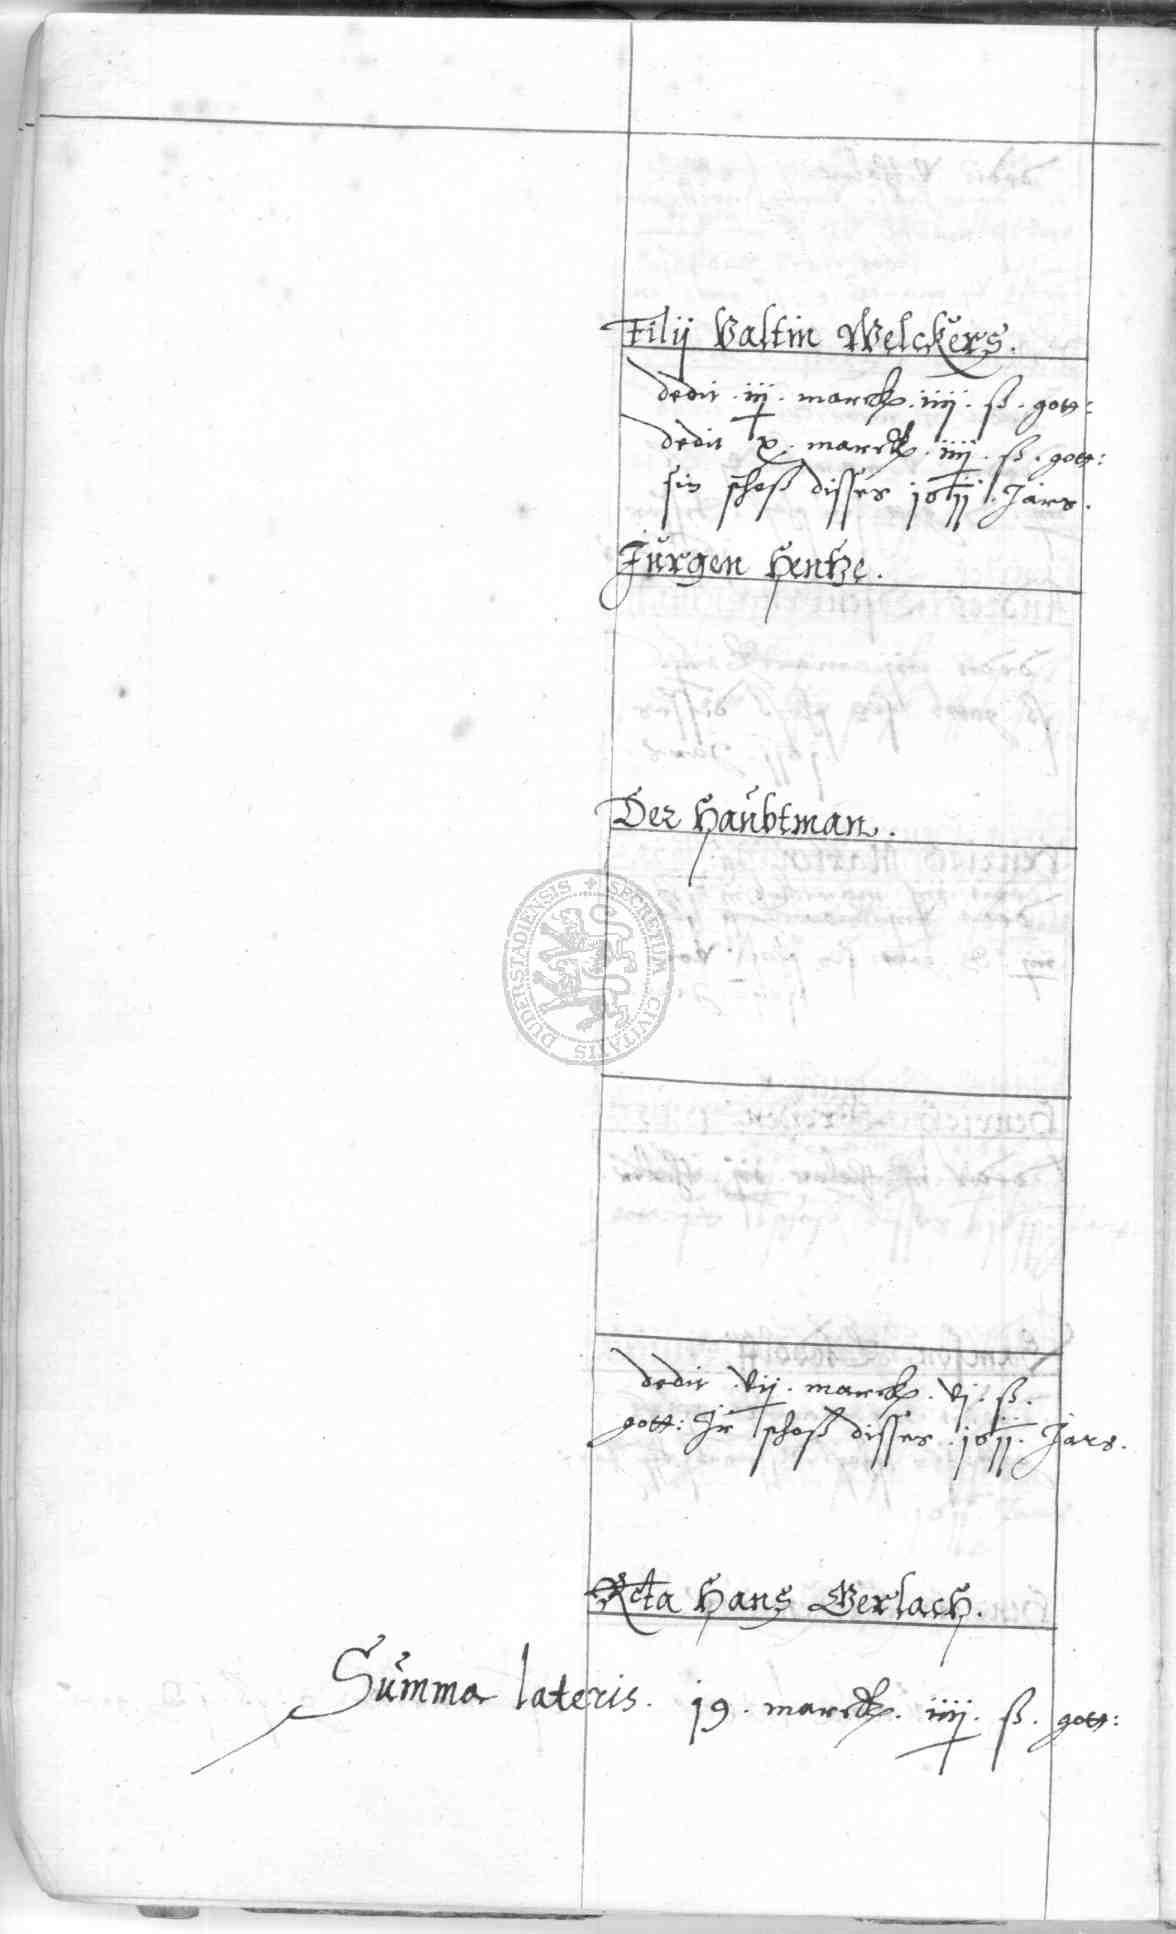 Filij Valtin Welckers.
dedit .iij. marck. iiij. ß. gott:
dedit x. marck. iiij. ß. gott:
sin schoß disses 1611. Jars.
Jürgen Hentze.
Der Haübtman.
SECRETUM CIVITATIS DUDERSTADIENSIS
dedit .vij. marck. vj. ß.
gott: Jr schoß disses .1611. Jars.
Rcta Hans Gerlach.
Sümma lateris. 19. marck. iiij. ß. gott: